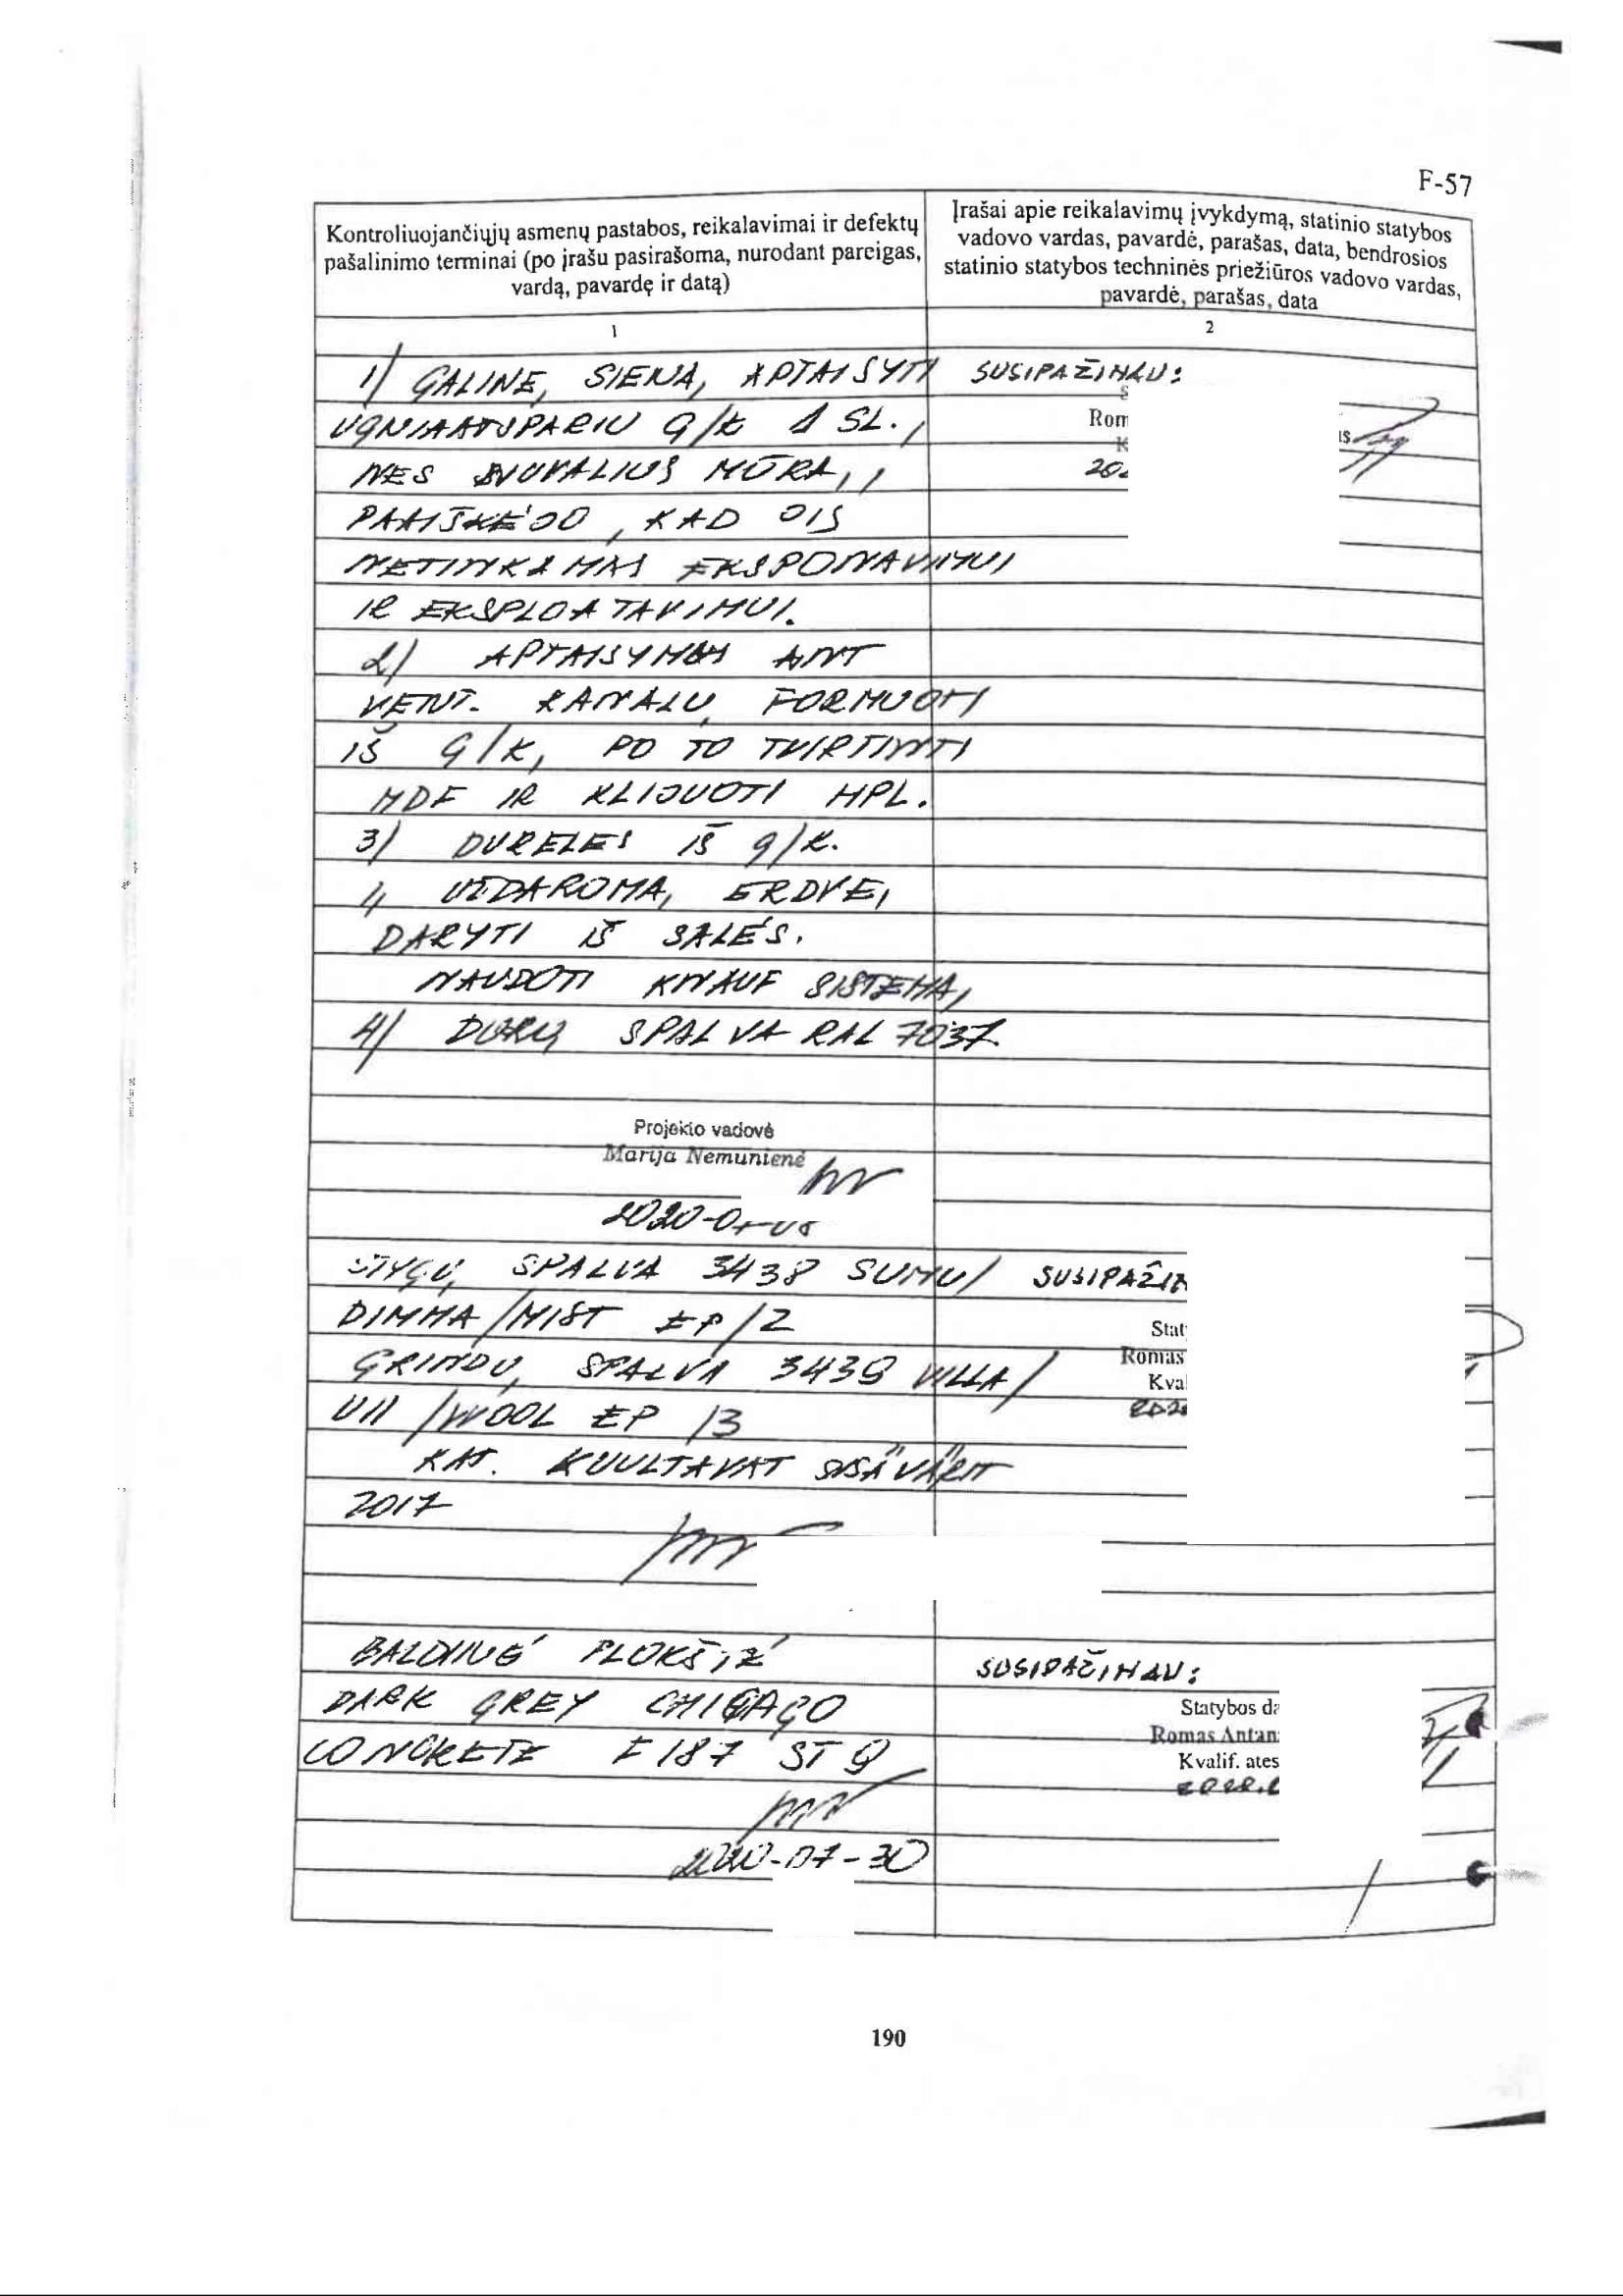 F-57
Kontroliuojančiųjų asmenų pastabos, reikalavimai ir defektų
pašalinimo terminai (po įrašu pasirašoma, nurodant pareigas,
vardą, pavardę ir datą)
Įrašai apie reikalavimų įvykdymą, statinio statybos
vadovo vardas, pavardė, parašas, data, bendrosios
statinio statybos techninės priežiūros vadovo vardas,
pavardė, parašas, data
1
2
1) GALINĘ SIENĄ APTAISYTI
UGNIAATSPARIU G/K 1 SL.,
NES MŪRĄ,
KAD JIS
NETINKAMAS EKSPONAVIMUI
IR EKSPLOATAVIMUI.
2) APTAISYMUS ANT
VENT. KANALŲ FORMUOTI
IŠ G/K, PO TO TVIRTINTI
MDF IR KLIJUOTI HPL.
3) DURELES IŠ G/K.
UŽDAROMĄ ERDVĘ
DARYTI IŠ SALĖS.
NAUDOTI KNAUF SISTEMĄ
4) DURŲ SPALVA RAL 7037
Projekto vadovė
Marija Nemunienė
SUSIPAŽINAU:
Rom
SPALVA 3438 SUMU/
DIMMA/MIST EP/2
GRINDŲ SPALVA 3439 VILLA/
ULL/WOOL EP/3
KAT. KUULTAVAT SISÄVÄRIT
2017
Stat
Romas
Kval
BALDINĖ PLOKŠTĖ
DARK GREY CHICAGO
CONCRETE F187 ST9
2020-07-30
SUSIPAŽINAU:
Statybos da
Romas Antan
Kvalif. ates
190